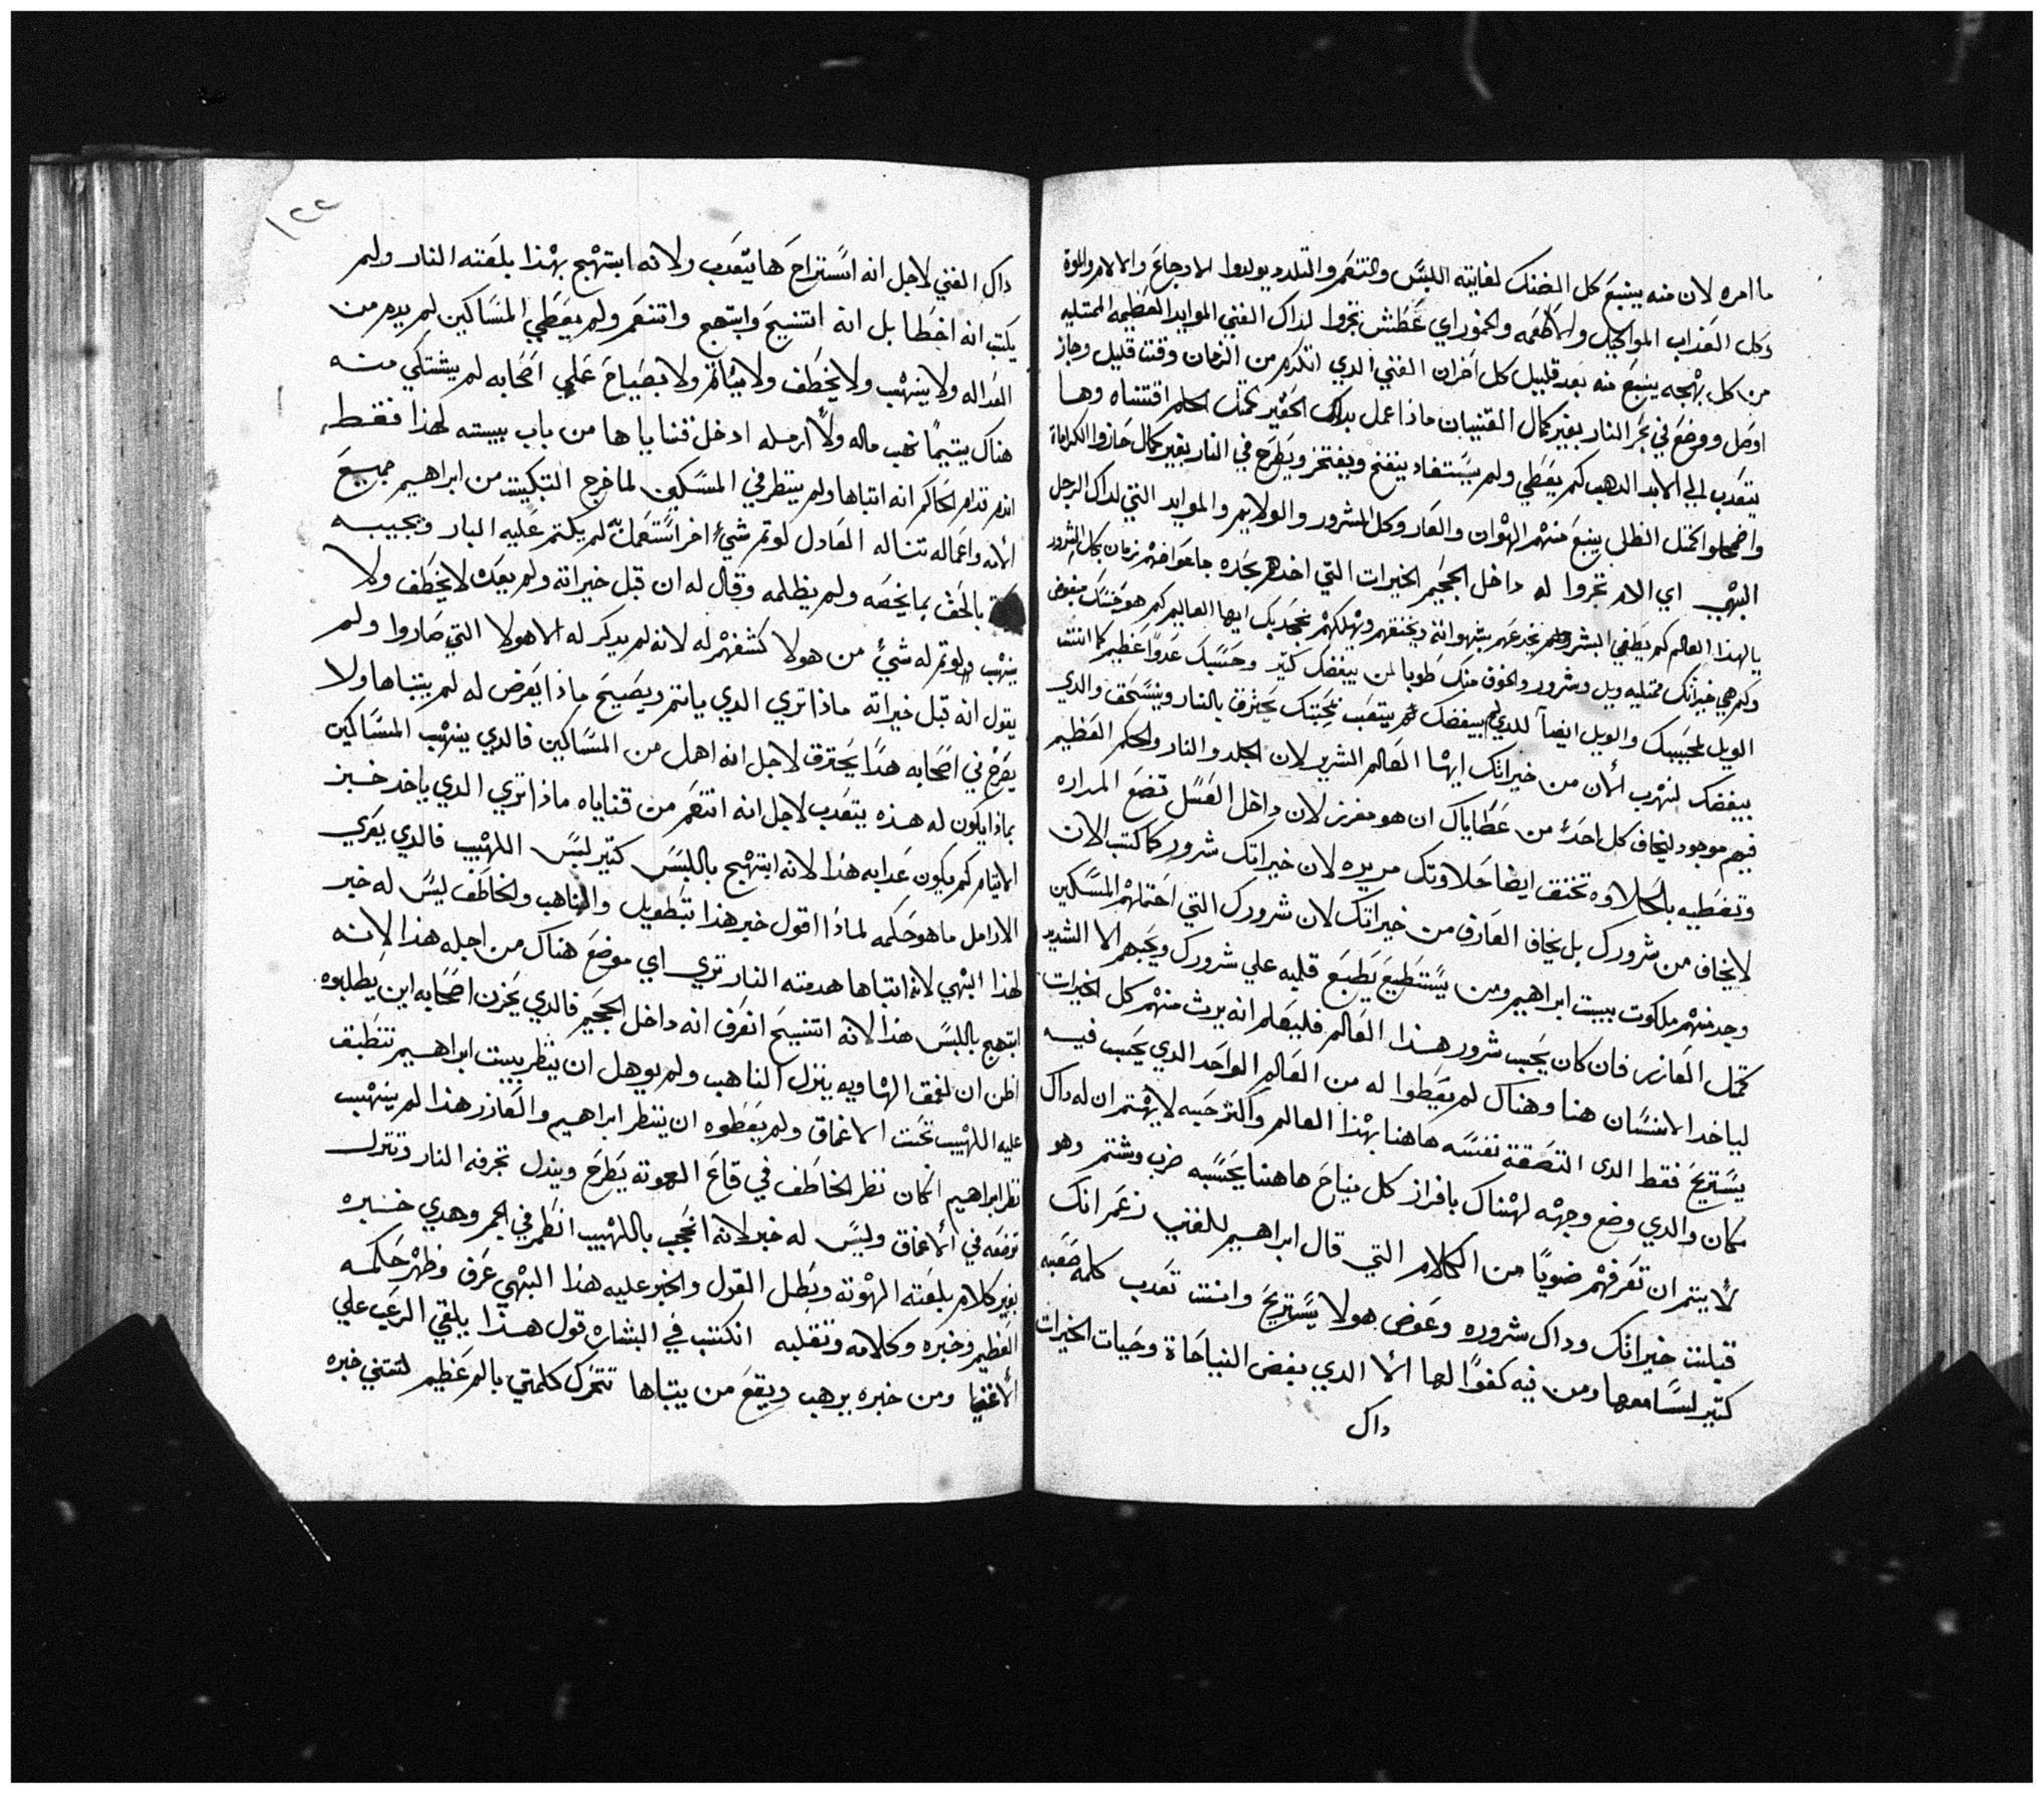 ما امره لان منه ينبع كل الضنك لغايته اللبس والتنعم والتلدد يولدوا الاوجاع والالام والموة
وكل العذاب المواكيل والاطعمه والخمور اي عطش نجروا لداك الغني الموايد العظيمه الممتليه
من كل بهجه ينبع منه بعد قليل كل احزان الغني الدي اتكرم من الزمان وقت قليل وجاز
اوصل ووضع في بحر النار بغير كمال القنيان ماذا عمل بداك الحقير كمثل الحلم اقتناه وها
يتعدب الي الابد الدهب كم يعطي ولم يستفاد ينفخ ويفتخر ويطرح في النار بغير كمال حازوا الكرامات
واضمحلوا كمثل الظل ينبع منهم الهوان والعار وكل الشرور والولايم والموايد التي لداك الرجل
البهي اي الام نجروا له داخل الجحيم الخيرات التي اخدهم بحده جا عواضهم زمان بكل الشرور
يالهذا العالم كم يطغي البشر وكم يخدعهم بشهواته ويخنقهم ويهلكهم محبك ايها العالم كم هو حسك مبغوض
وكم هي خيراتك ممتليه ويل وشرور والخوف منك طوبا لمن يبغضك كتير وحسبك عدوا عظيم كما انت
الويل لمحبيك والويل ايضا للدي لم يبغضك لم يتعب محبتك يحترق بالنار وينسحق والدي
يبغضك ليهرب الان من خيراتك ايها العالم الشرير لان الجلد والنار والحكم العظيم
فيهم موجود ليخاف كل احد من عطاياك ان هو مفرز لان داخل العسل تضع المراره
وتغطيه بالحلاوه تخنق ايضا حلاوتك مريره لان خيراتك شرور كما كتب الان
لا يخاف من شرورك بل يخاف العارف من خيراتك لان شرورك التي احتملهم المسكين
وجد منهم ملكوت ببيت ابراهيم ومن يستطيع يطبع قلبه علي شرورك ويحبهم الا الشديد
كمثل العازر فان كان يحب شرور هذا العالم فليعلم انه يرث منهم كل الخيرات
لياخد الانسان هنا وهناك لم يعطوا له من العالم الواحد الدي يحب فيه
يستريح فقط الدي التصقت نفسه هاهنا بهذا العالم واكثر حبه لا يهتم ان له داك
مكان والدي وضع وجهه لهناك بافراز كل نياح هاهنا يحسبه ضرب وشتم وهو
لا يتم ان تعرفهم ضويا من الكلام التي قال ابراهيم للغني زعم انك
قبلت خيراتك وداك شروره وعوض هولا يستريح وانت تعدب كلمه صعبه
كتير لسامعها ومن فيه كفوا لها الا الدي بغض النياحاة وحيات الخيرات
داك
١٢٢
داك الغني لاجل انه استراح ها يتعدب ولانه ابتهج بهذا بلعته النار ولم
يكتب انه اخطا بل انه اتنيح وابتهج واتنعم ولم يعطي المساكين لم يدم من
العداله ولا ينهب ولا يخطف ولا يتاثم ولا بصياح علي اصحابه لم يشتكي منه
هناك يتيما نهب ماله ولا ارمله ادخل قنايا ها من باب بيته لهذا فقط
اندم قدام الحاكم انه اتباها ولم ينظر في المسكين لما خرج التبكيت من ابراهيم جميع
الامه واعماله تناله العادل لو تم شيء اخر استعمله لم يكتم عليه البار ويجيبه
بالحق بما يخصه ولم يظلمه وقال له ان قبل خيراته ولم يعد لا يخطف ولا
ينهب ولو تم له شيء من هولا كشفهم له لانه لم يدكر له الا هولا التي صاروا ولم
يقول انه قبل خيراته ماذا تري الدي ياثم ويصيح ماذا يعرض له لم يتباها ولا
يفرح في اصحابه هذا يحترق لاجل انه اهمل من المساكين فالدي ينهب المساكين
بماذا يكون له هذه يتعدب لاجل انه اتنعم من قناياه ماذا تري الدي ياخد خبز
الايتام كم يكون عدابه هذا لانه ابتهج باللبس كتير لبس اللهيب فالدي يعري
الارامل ما هو حكمه لماذا اقول خبر هذا بتطويل والناهب والخاطف ليس له خبر
لهذا البهي لانه اتباها هدمته النار تري اي موضع هناك من اجله هذا لانه
ابتهج باللبس هذا لانه اتنيح انعرف انه داخل الجحيم فالدي يحزن اصحابه اين يطلبوه
اظن ان لعمق الهاويه ينزل الناهب ولم يوهل ان ينظر ببيت ابراهيم تنطبق
عليه اللهيب تحت الاعماق ولم يعطوه ان ينظر ابراهيم والعازر هذا لم ينهب
نظر ابراهيم ان كان نظر الخاطف في قاع الهوته يطرح ويندل تجرفه النار وتنزل
توضعه في الاعماق وليس له خبر لانه انحجب باللهيب انطمر في الجمر وهدي خبره
بغير كلام بلعته الهوته وبطل القول والخبر عليه هذا البهي عرف وظهر حكمه
العظيم وخبره وكلامه وتقلبه انكتب في البشاره قول هذا يلقي الرعب علي
الاغنيا ومن خبره يرهب ويقع من يتباها تتحرك كلمتي بالم عظيم لتقتني خبره